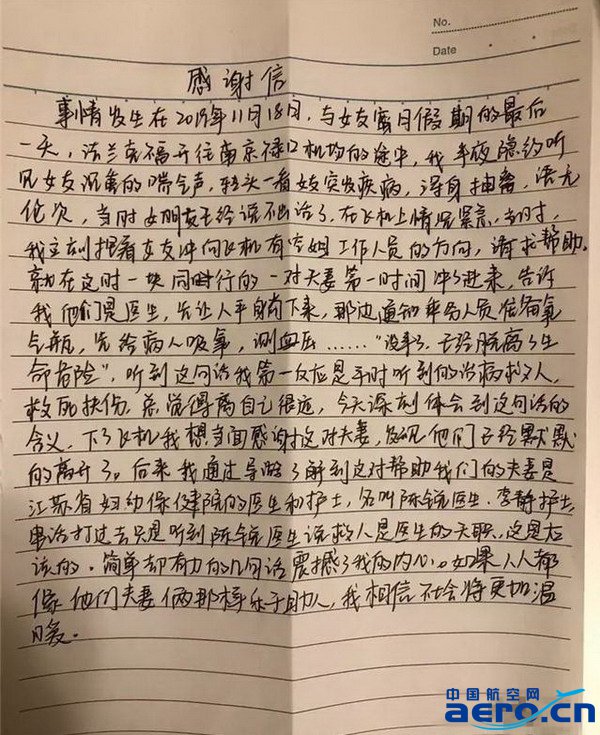 No.
Date
感谢信
事情发生在2019年11月18日,与女友蜜月假期的最后
一天,法兰克福开往南京禄口机场的途中,我半夜隐约听
见女友沉重的喘气声,转头一看女友突发疾病,浑身抽搐,语无
伦次,当时女朋友已经说不出话了,在飞机上情况紧急,当时,
我立刻抱着女友冲向飞机有空姐工作人员的方向,请求帮助.
就在这时一块同时行的一对夫妻第一时间冲了进来,告诉
我他们是医生,先让人平躺下来,那边通知乘务人员准备氧
气瓶,先给病人吸氧,测血压……"没事了,已经脱离了生
命危险",听到这句话我第一反应是平时听到的治病救人,
救死扶伤,总觉得离自己很远,今天深刻体会到这句话的
含义,下了飞机我想当面感谢这对夫妻,发现他们已经默默
的离开了。后来我通过导游了解到这对帮助我们的夫妻是
江苏省妇幼保健院的医生和护士,名叫陈锐医生.李静护士,
电话打过去只是听到陈锐医生说救人是医生的天职,这是应
该的.简单却有力的几句话震撼了我的内心。如果人人都
像他们夫妻俩那样乐于助人,我相信社会将更加温
暖。
中国航空网
aero.cn